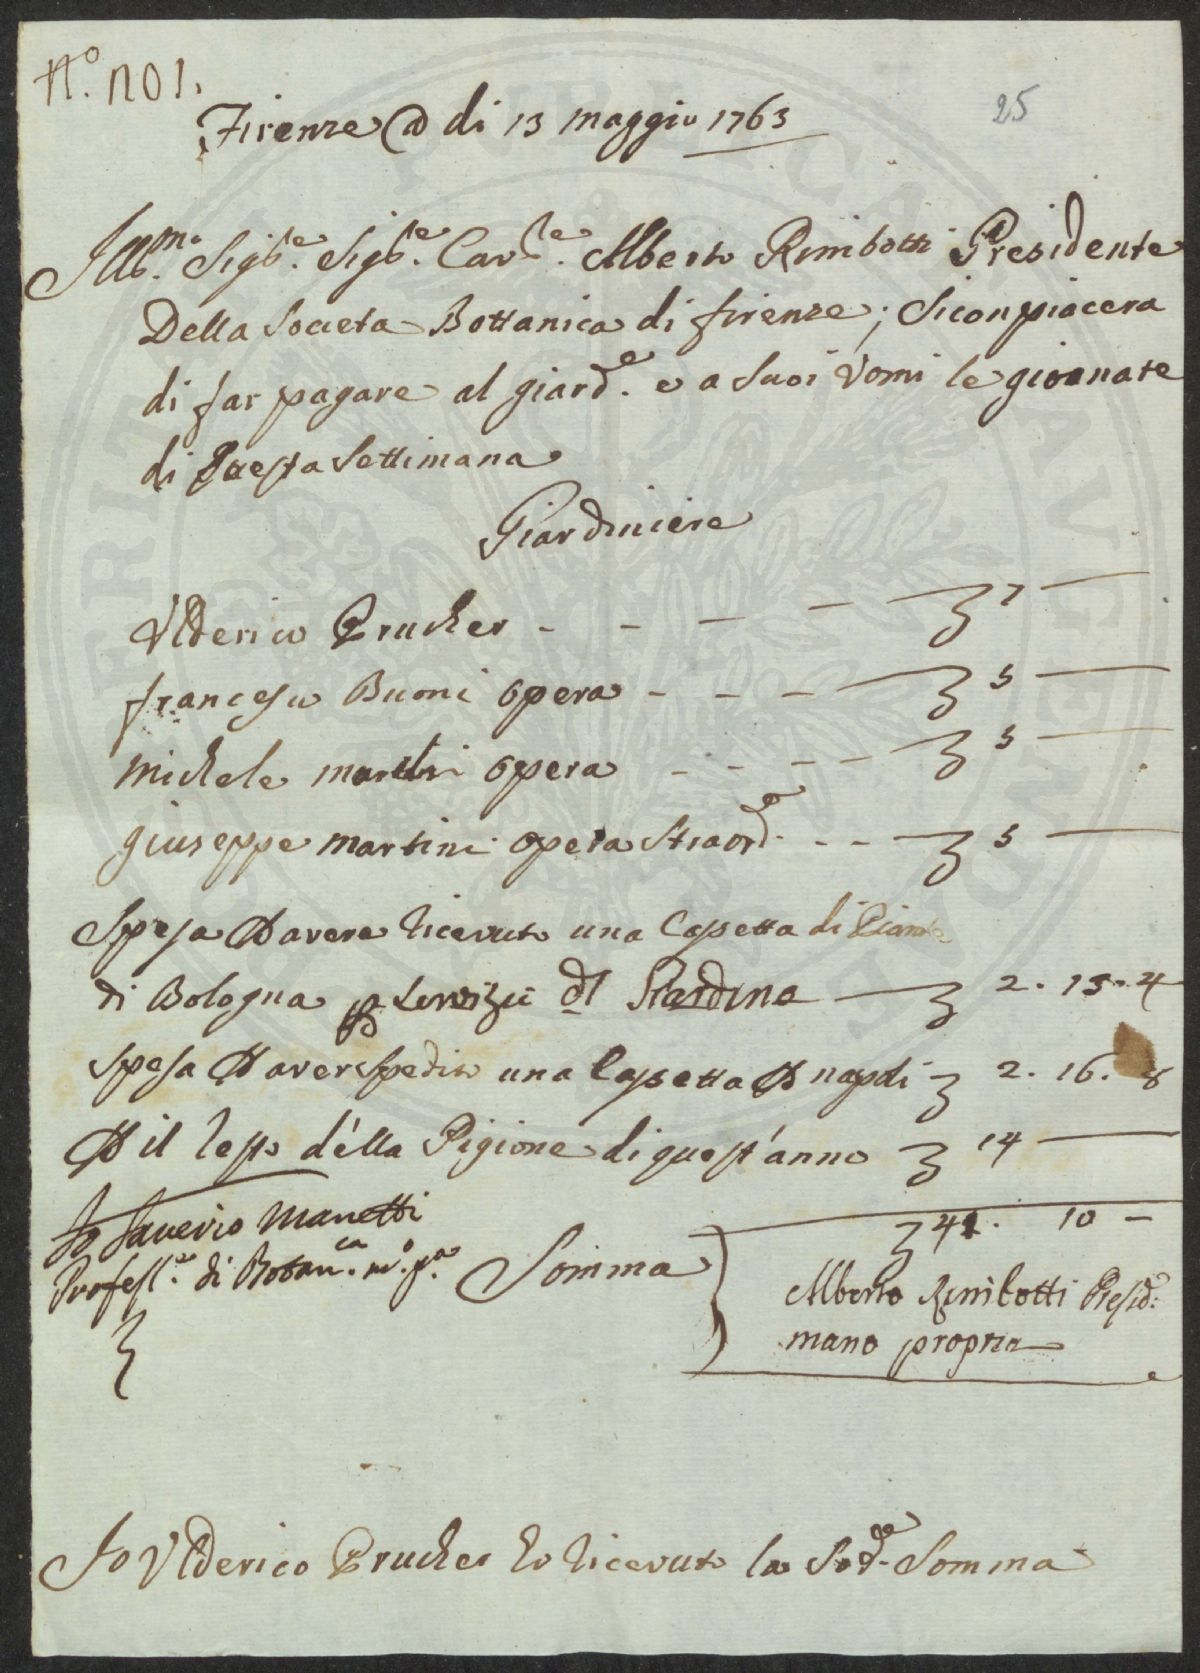 N.º 1101.
25
Firenze A di 13 maggio 1763
Illᵐº. Sigᵣᵉ. Sigᵣᵉ. Cavᵣᵉ. Alberto Rimbotti Presidente
Della Societa Bottanica di firenze; Si conpiacera
di far pagare al giardᵉ. e a Suoi Vomi le giornate
di Questa Settimana
Giardiniere
Vlderico Prucker - - - - 7 —
francesco Buoni opera - - - 5 —
Michele opera - - - - 5 —
giuseppe martini opera Straordᵉ. - - - 5 —
Spesa D avere ricevuto una Casetta di Piante
di Bologna p Servizio dl Giardino — 2. 13. 4
Spesa D aver Spedito una Casetta A napoli 2. 16. 8
D il resto della Pigione di quest'anno 14 —
41. 10 —
Io Saverio Manetti
Professᵉ. di Botanᶜᵃ. mº. pª.
Somma
Alberto Rimbotti Presidᵉ:
mano propria
Io Vlderico Prucker ho ricevuto la Sodᵉ. Somma